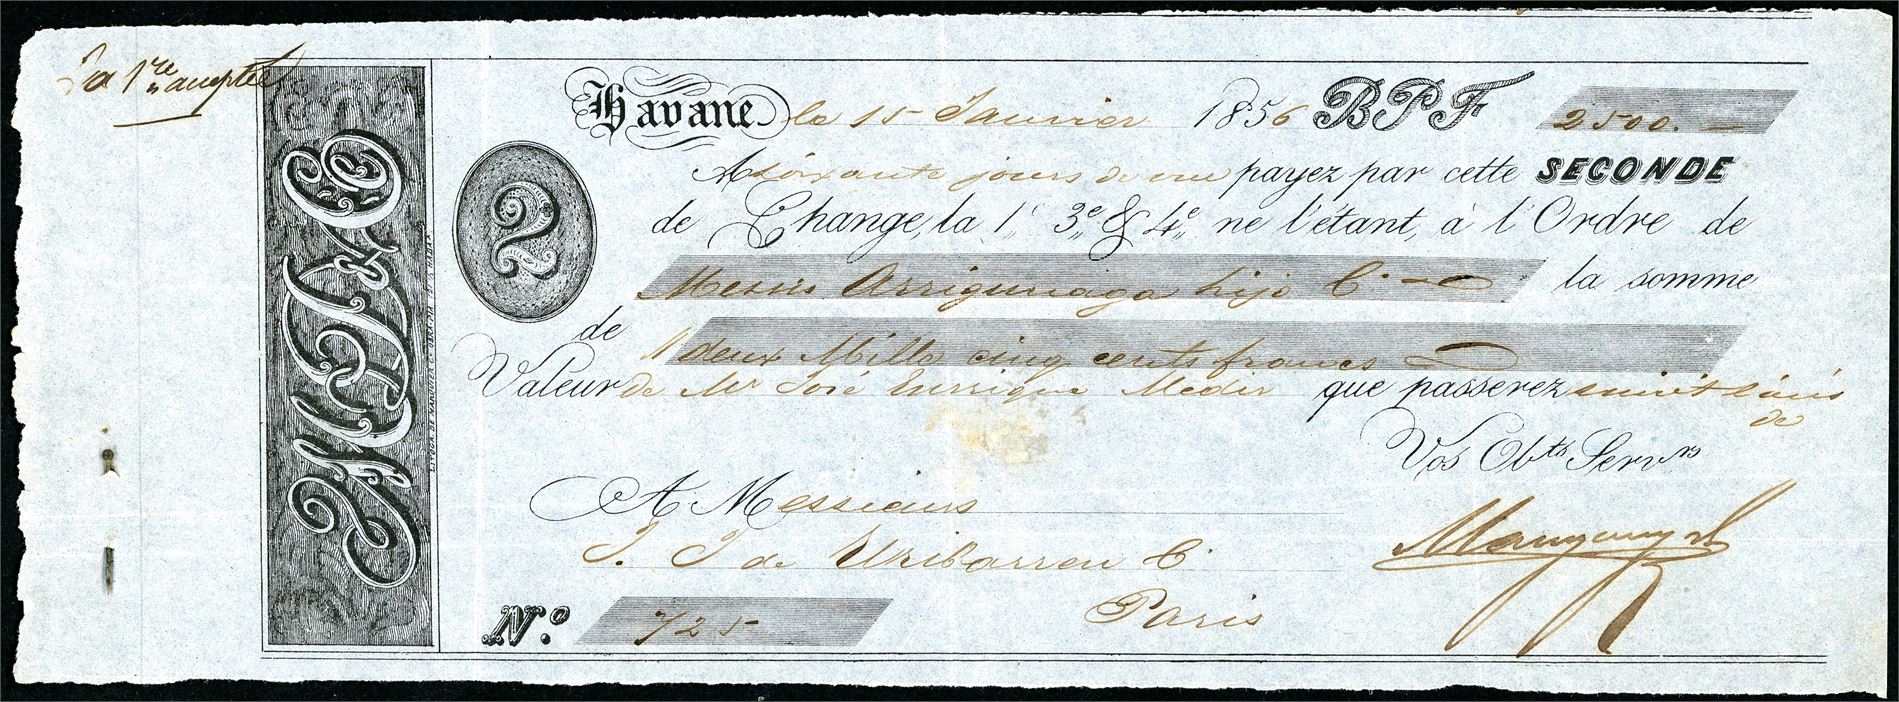 La 1re acceptée
Havane le 15 Janvier 1856 BPF 2500.—
A soixante jours de vue payez par cette SECONDE
de Change, la 1e, 3e, & 4e, ne l'étant, à l'Ordre de
Messrs Arrigunaga hijo Ca la somme
de deux Mille cinq cents francs
Valeur de Mr José Enrrique Medir que passerez suivt l'avis de
Vos Obts Servrs
A Messieurs
J. J de Uribarren C.
Paris
No. 725
2